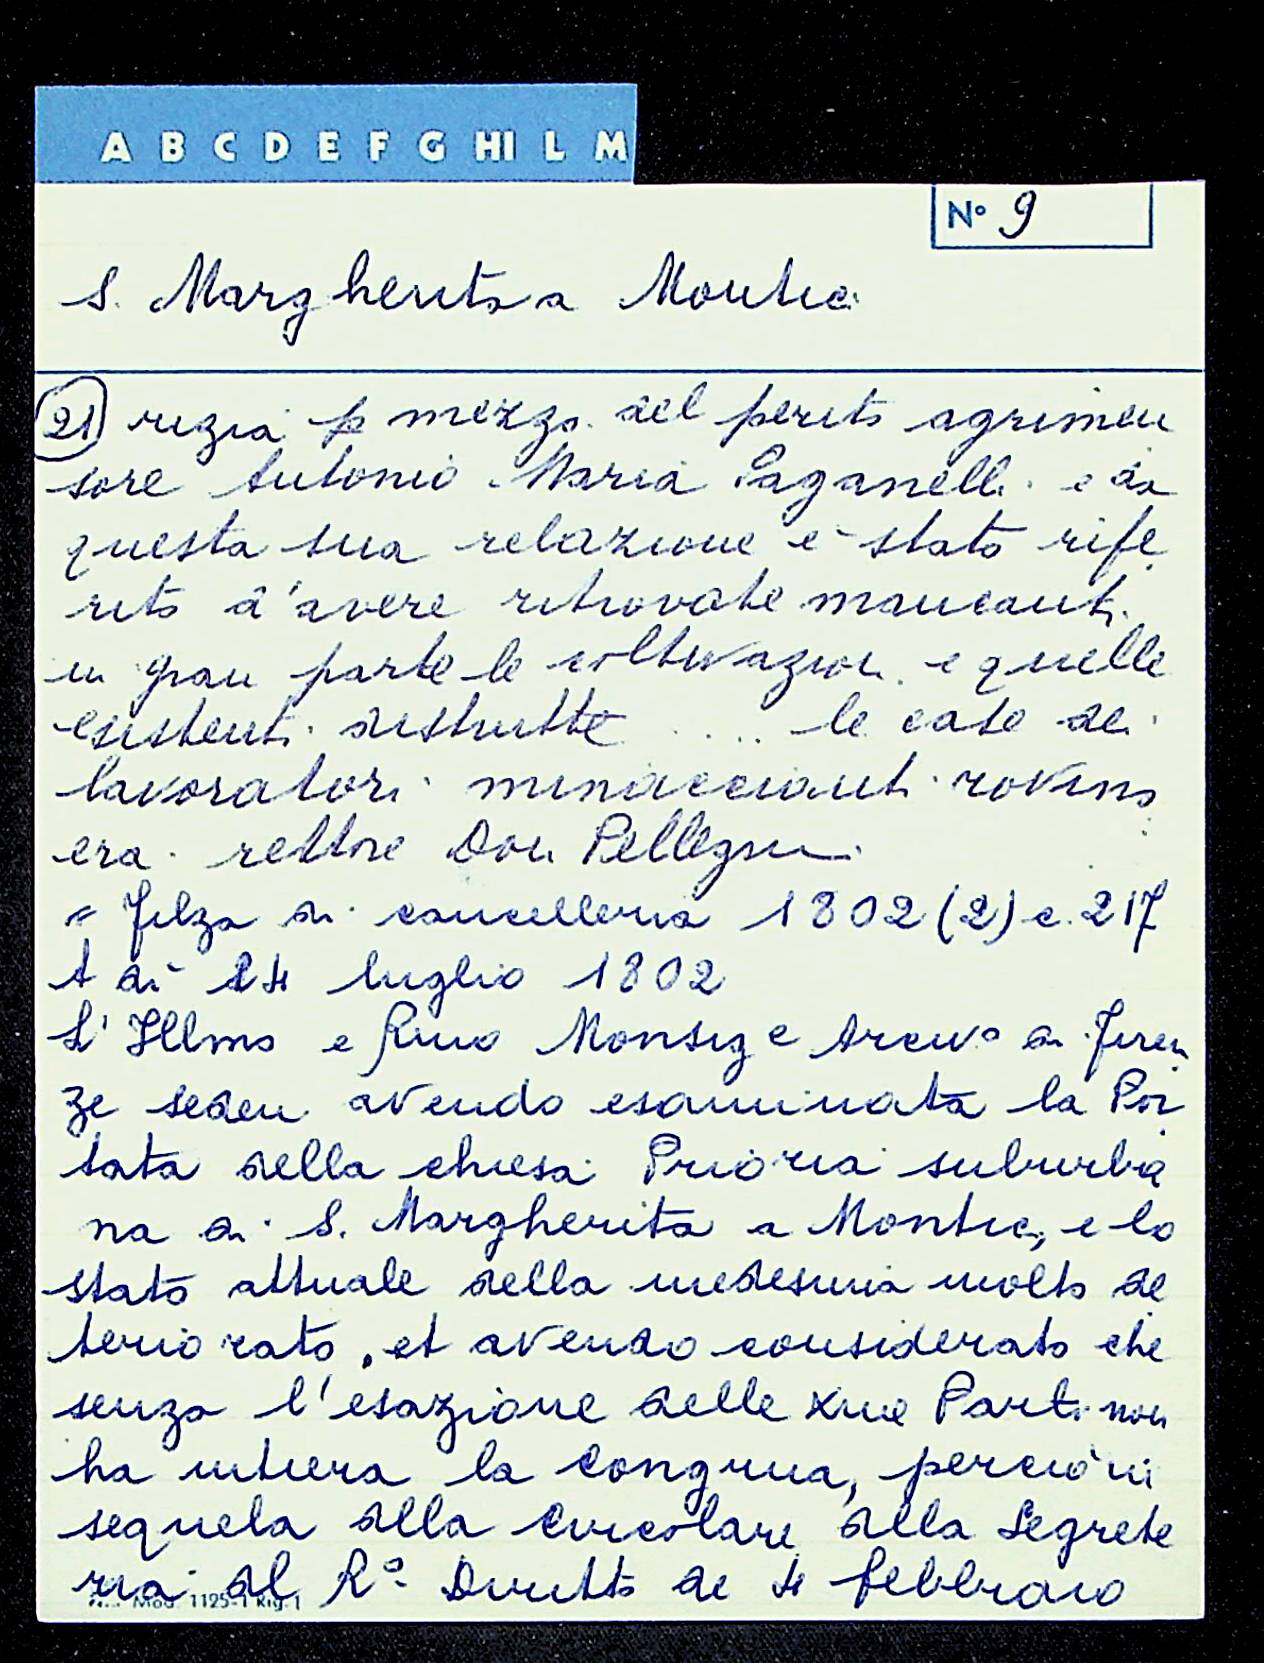 A B C D E F G HI L M
N° 9
S. Margherita a Montici
21 rizia p mezzo del perito agrimen
sore Antonio Maria Paganelli e da
questa sua relazione è stato rife
rito d'avere ritrovate mancanti
in gran parte le coltivazioni e quelle
esistenti distrutte .... le case dei
lavoratori minaccianti rovina
era rettore Don Pellegrini
= Filza di cancelleria 1802 (2) c. 217
A dì 24 luglio 1802
L' Illmo e Rmo Monsig e Arciv° di Firen
ze seden avendo esaminata la Por
tata della chiesa Prioria suburba
na di S. Margherita a Montici, e lo
stato attuale della medesima molto de
teriorato, et avendo considerato che
senza l'esazione delle Xme Parti non
ha intiera la congrua, perciò in
sequela della Circolare della Segrete
ria del R° Diritto de 4 febbraio
Mod. 1125-1 Rig. 1